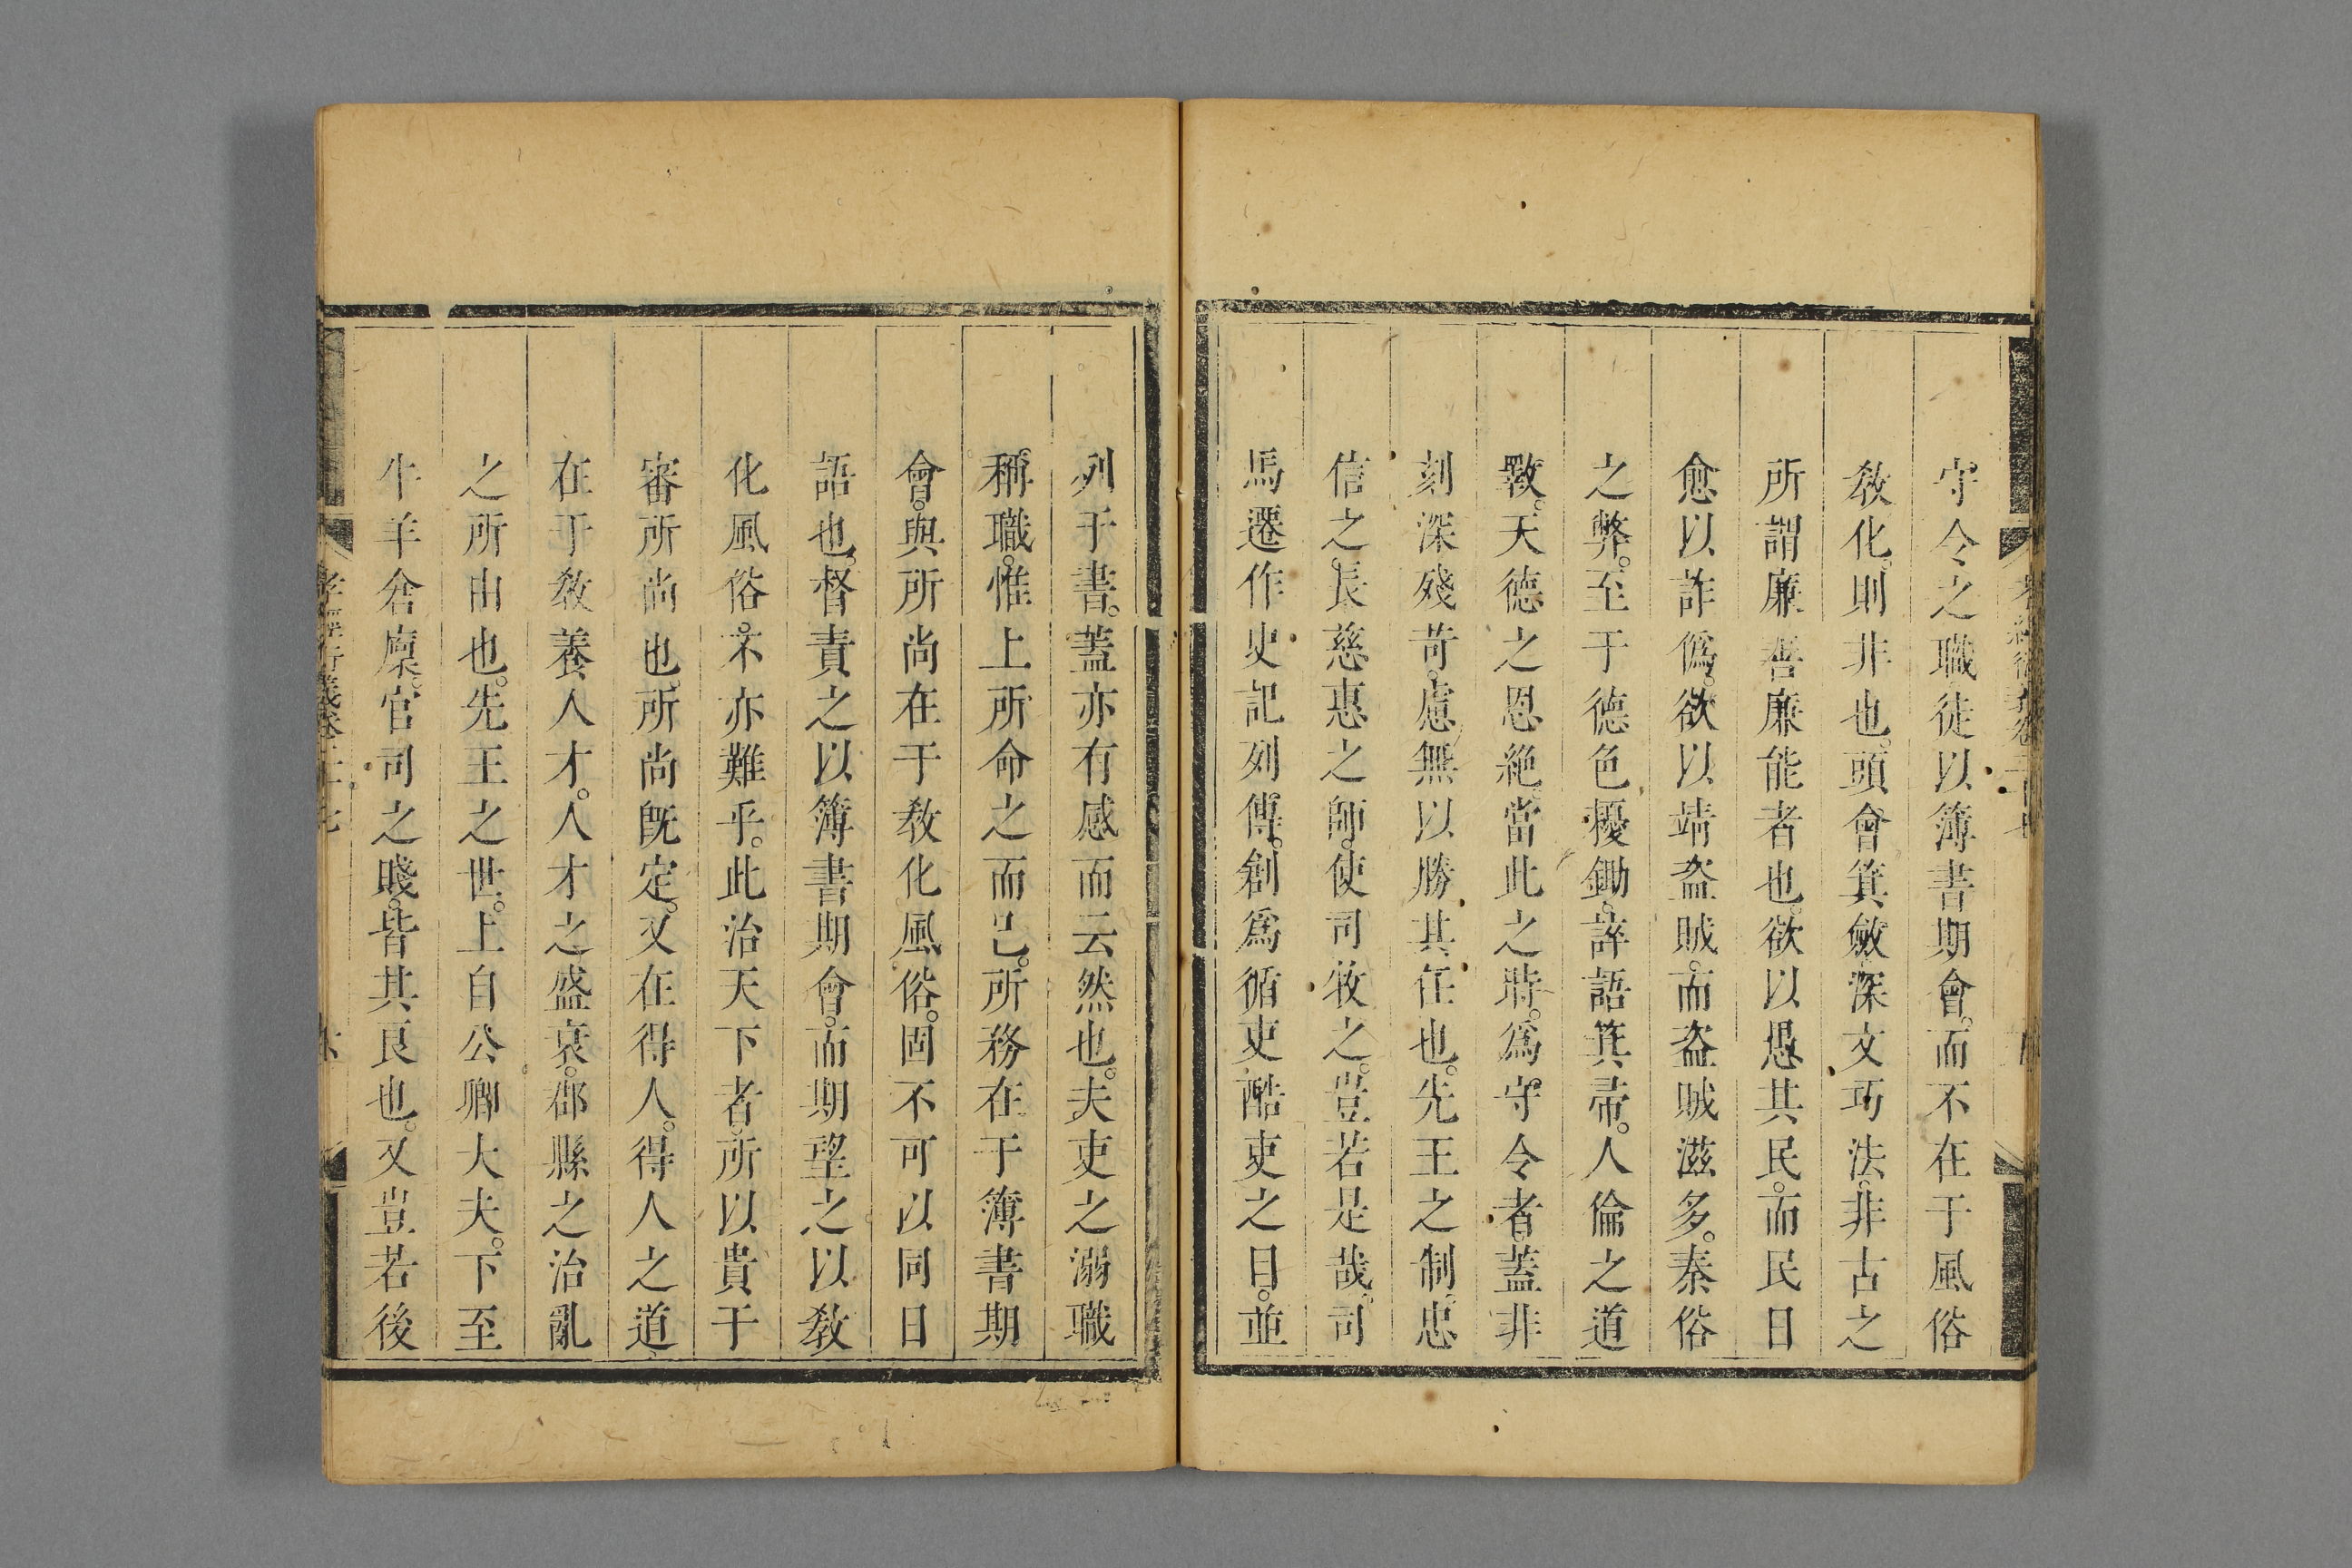 守令之職徒以簿書期會。而不在于風俗
敎化。則非也。頭會箕斂深文巧法。非古之
所謂廉善廉能者也。欲以愚其民。而民日
愈以詐僞。欲以靖盗賊。而盗賊滋多。秦俗
之弊。至于德色擾鋤。誶語箕帚。人倫之道
斁。天德之恩絶。當此之時。爲守令者。蓋非
刻深殘苛。慮無以勝其任也。先王之制。忠
信之長。慈惠之師。使司牧之。豈若是哉。司
馬遷作史記列傳。創爲循吏酷吏之目。並
列于書。蓋亦有感而云然也。夫吏之溺職
稱職。惟上所命之而已。所務在于簿書期
會。與所尚在于敎化風俗。固不可以同日
語也。督責之以簿書期會。而期望之以敎
化風俗。不亦難乎。此治天下者。所以貴于
審所尚也。所尚旣定。又在得人。得人之道
在于敎養人才。人才之盛衰。郡縣之治亂
之所由也。先王之世。上自公卿大夫。下至
牛羊倉廩。官司之賤。皆其良也。又豈若後